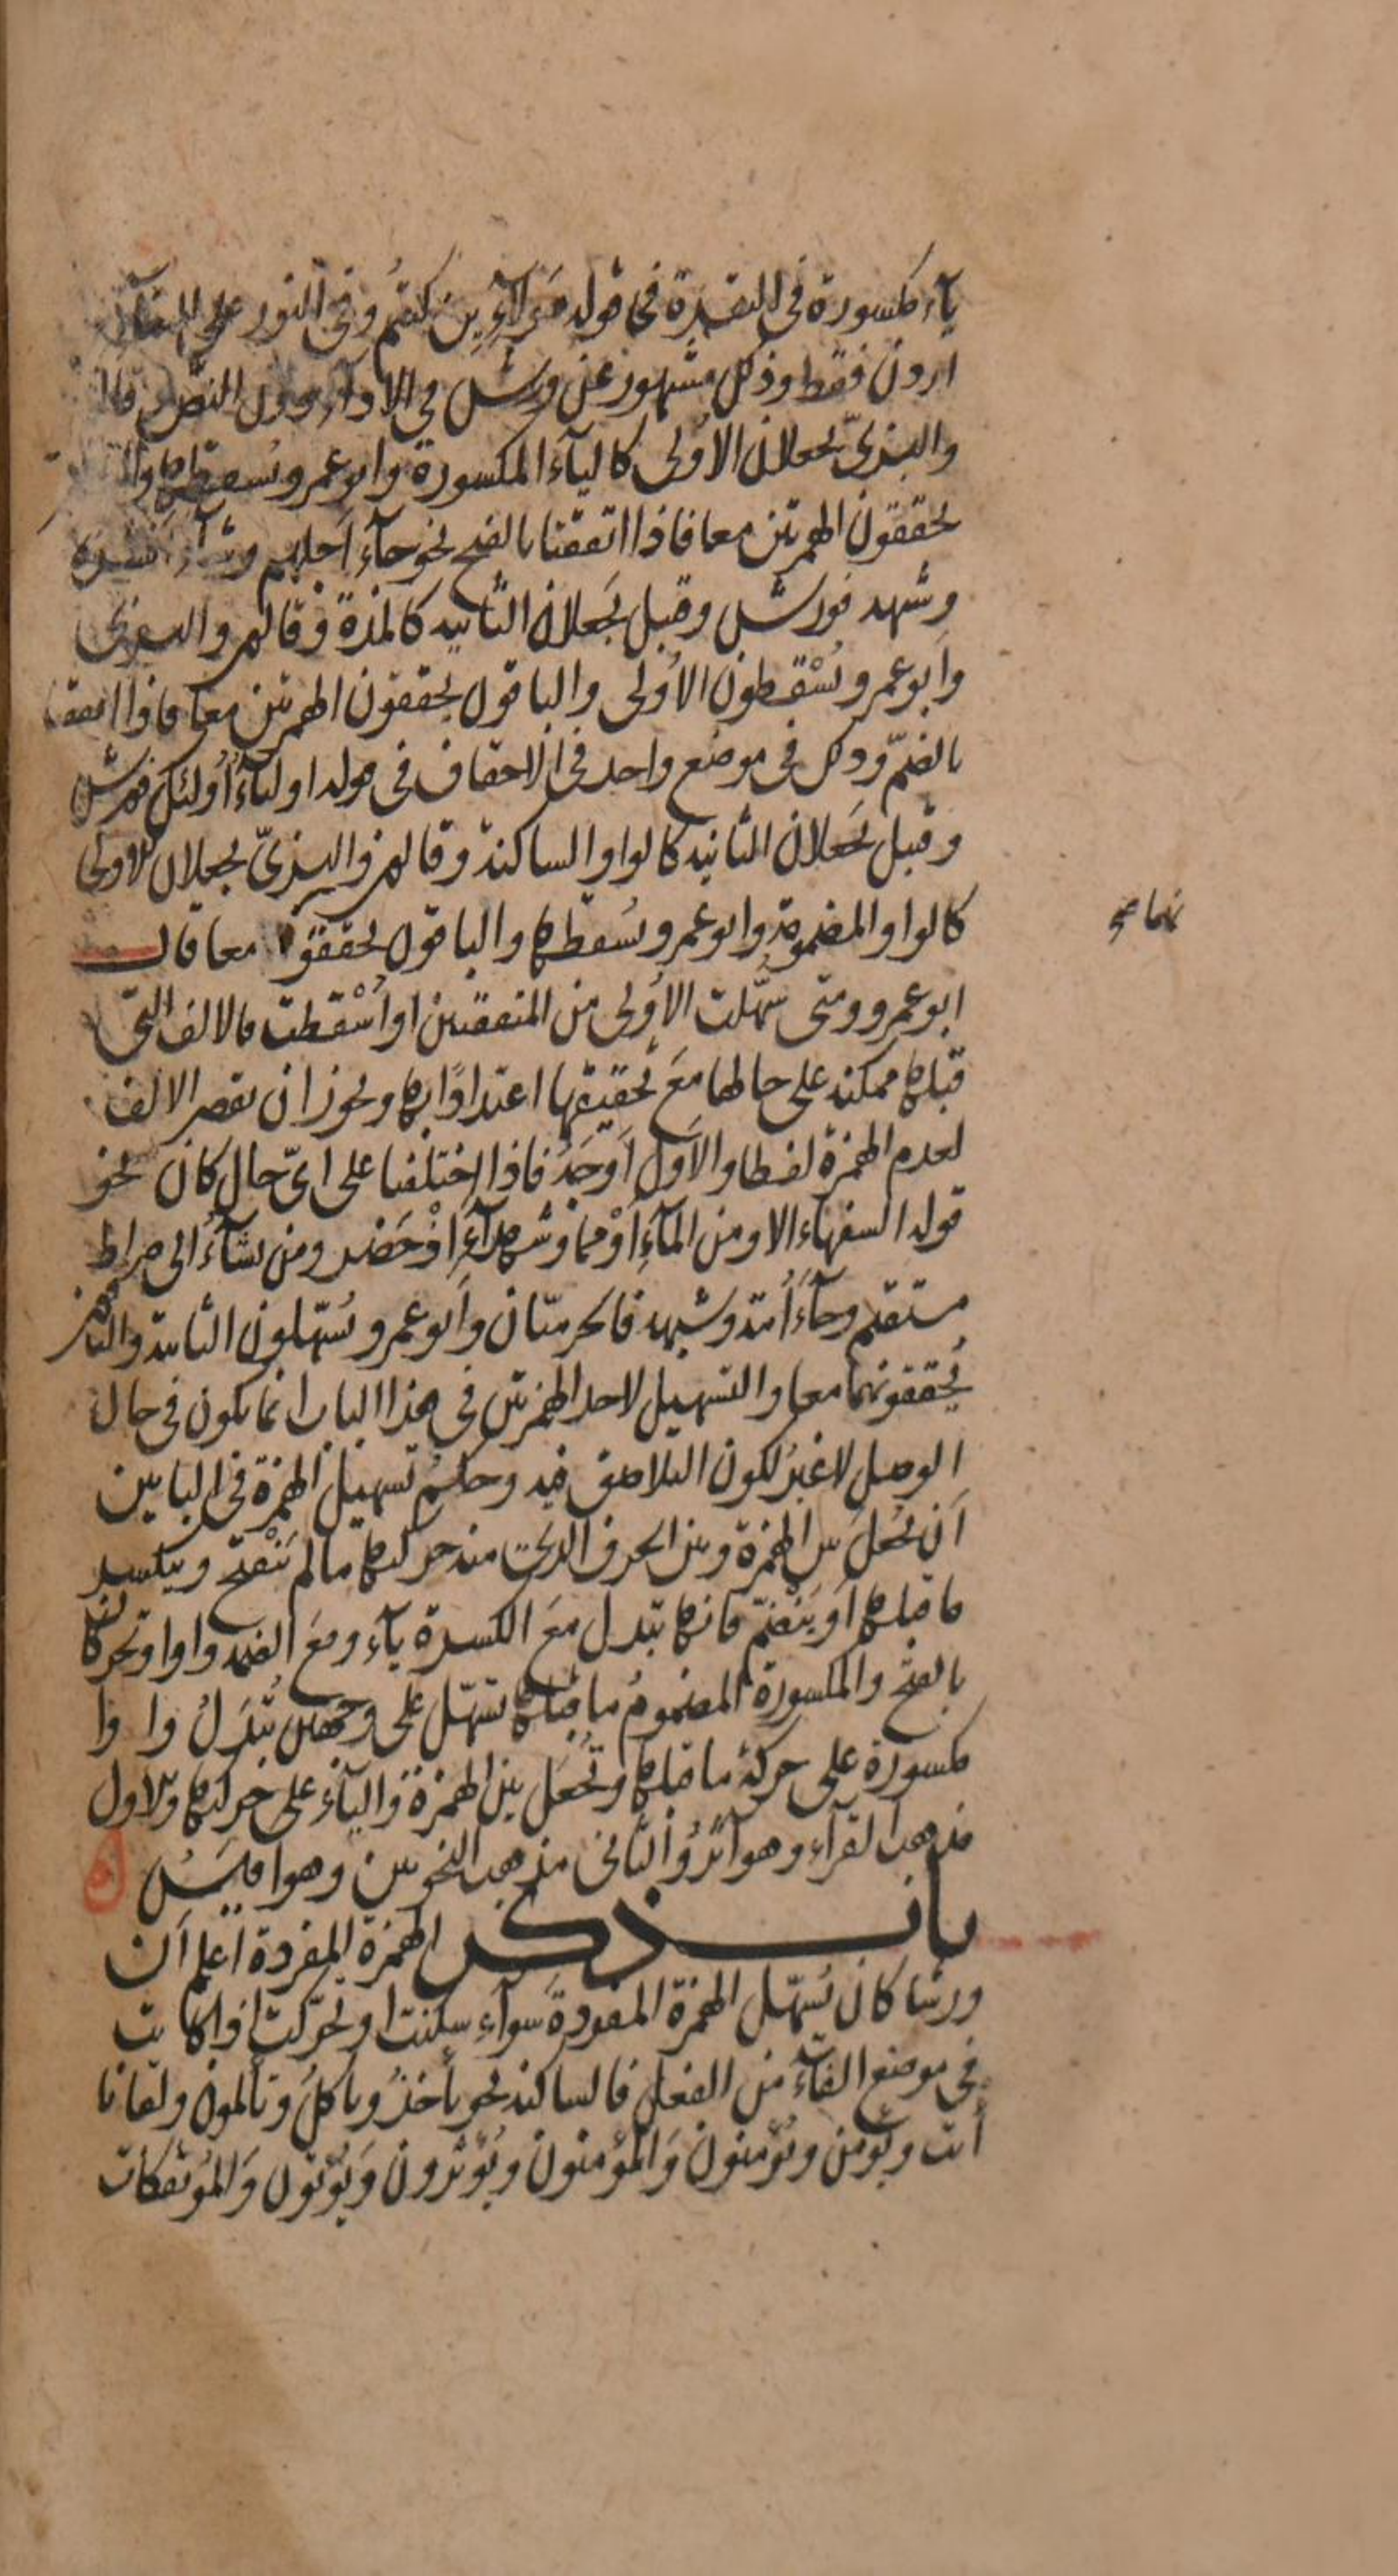 ياء مكسورة في البقرة في قوله هؤلاء ين كنتم وفي النور على البغاء ان
اردن فقط وذلك مشهور عن ورش في الاداء دون النص وقالون
والبزي يجعلان الاولى كالياء المكسورة وابو عمرو يسقطها
يحققون الهمزتين معا فاذا اتفقتا بالفتح نحو جاء اجلهم وشاء انشره
وشبهه فورش وقنبل يجعلان الثانية كالمدة وقالون والبزي
وابو عمرو يُسْقطون الأولى والباقون يحققون الهمزتين معا فاذا اتفقتا
بالضمّ وذلك في موضع واحد في الاحقاف في قوله اولياءُ أُولئك فورش
وقنبل يَجعلان الثانية كالواو الساكنة وقالون والبزيّ يجعلان الاولى
كالواو المضمومة وابو عمرو يُسقطها والباقون يحققونهما معا قال
نهما صح
ابو عمرو ومتى سهّلت الأولى من المتفقتين او أُسْقطت فالالف التي
قبلها ممكنة على حالها مَعَ تحقيقها اعتدادًا بها ويجوز ان يقصر الالف
لعدم الهمزة لفظا والاَول اَوجَهُ فاذا اختلفتا على ايّ حال كان نحو
قوله السفهاء الا ومن المآءِ اَوْ مما وشهدآءَ اِذْ حَضر ومن يشآءُ الى صراط
مستقيم وجآءَ أُمّة وشبهه فالحرميّان وابو عمرو يُسَهّلون الثانية والباقون
يُحققونهما معا والتسهيل لاحد الهمزتين في هذا الباب انما يكون في حال
الوصل لا غيرُ لكون التلاصق فيه وحكمُ تسهيل الهمزة في البابين
اَن تُجعلَ بين الهمزة وبين الحرف الذي منه حركتها ما لم تَنْفتح وينكسر
ما قبلها اَو يَنْضمّ فانها تبدل مَعَ الكسرة يآء ومعَ الضمة واوا وتحركان
بالفتح والمكسورة المضمومُ ما قبلها تُسهّل على وجهين تُبْدَلُ واوا
مكسورة على حركة ما قبلها وتُجعل بين الهمزة والياء على حركتها والاول
مذهب القرّآء وهو آثرُ والثاني مذهب النحويين وهو اقيسُ
باب ذكر الهمزة المفردة اعلم اَن
ورشا كان يُسَهّل الهمزة المفردة سَوآء سكنت او تحرّكت اذا كانت
في موضع الفآء من الفعل فالساكنة نحو يأخذُ ويأكل وتألمون ولقانا
أئت ويؤمن ويُؤمنون وَالمؤمنون ويُؤثرون وَيُؤتون وَالمُؤتفكات